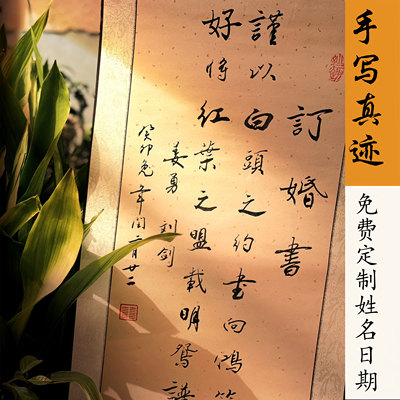 手写真迹
免费定制姓名日期
訂婚書
謹以白頭之約書向鴻
好将紅葉之盟載明鴛譜
姜勇 刘剑
癸卯兔年闰二月廿二